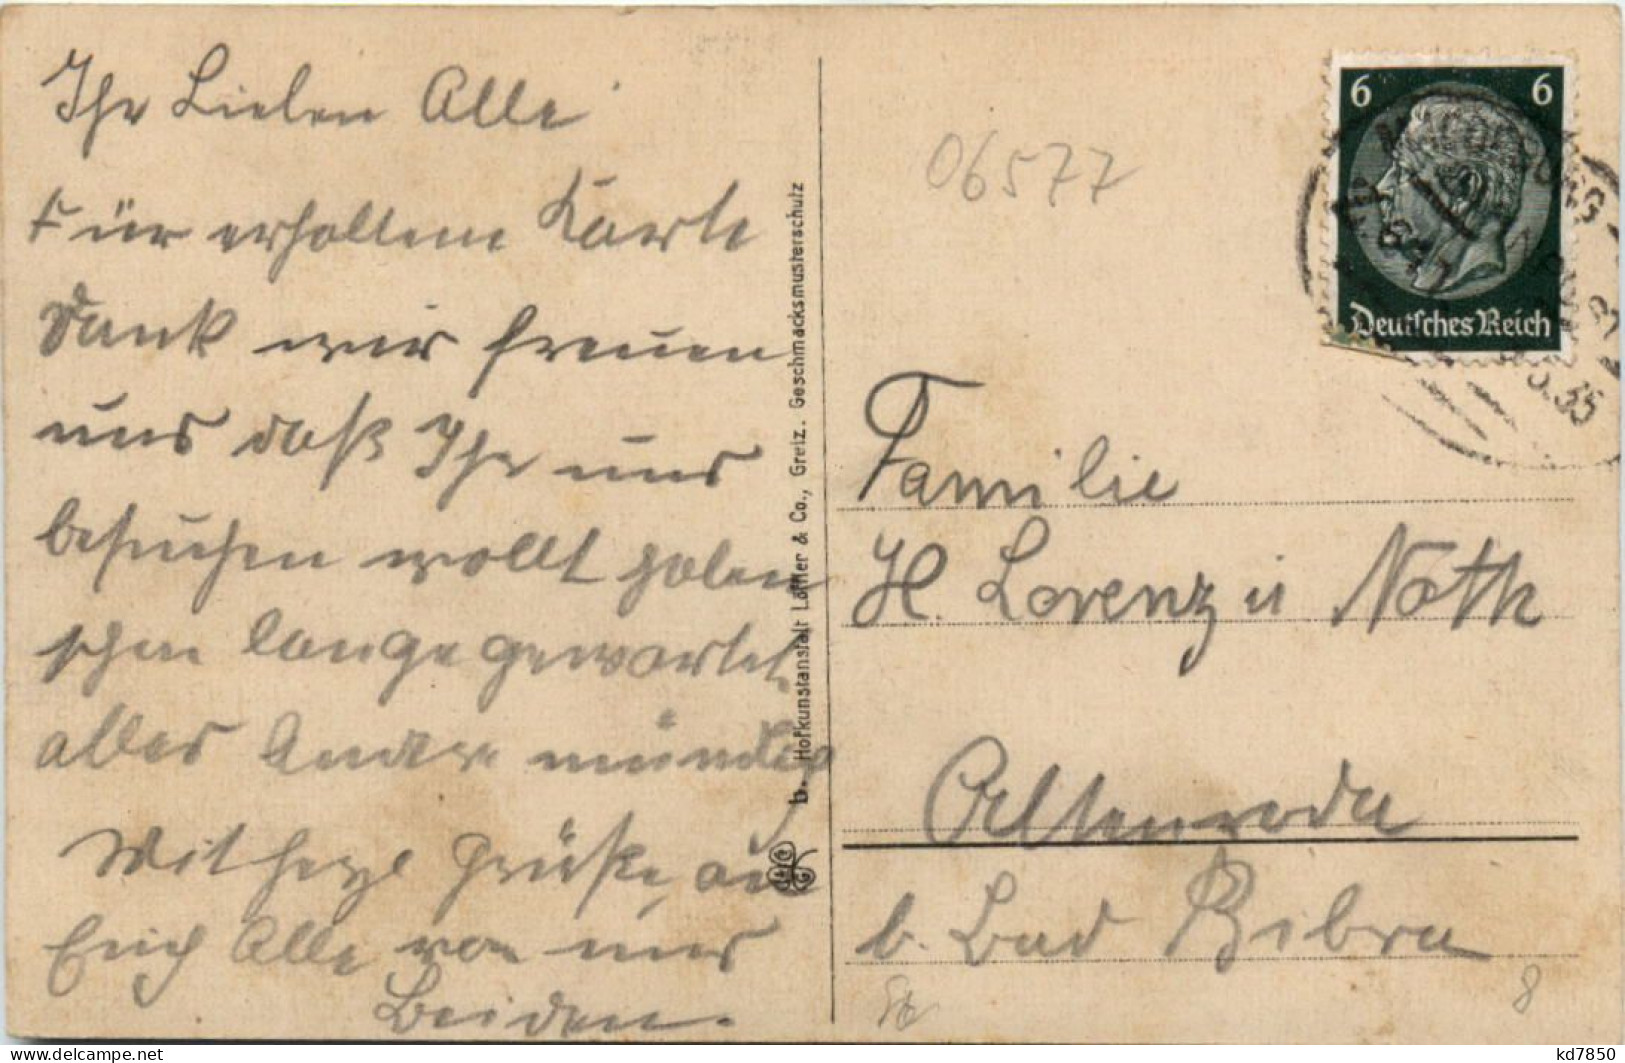 Ihr Lieben Alle
Für erhaltene Karte
Dank wir freuen
uns daß Ihr uns
besuchen wollt haben
schon lange gewartet
alles Andere mündlich
Mit herzl Grüße, an
Euch Alle von uns
Beiden.
b. Hofkunstanstalt Löffler & Co., Greiz. Geschmacksmusterschutz
06577
6 6
Deutsches Reich
Familie
H. Lorenz u Noth
Altenroda
b. Bad Bibra
8
kd7850